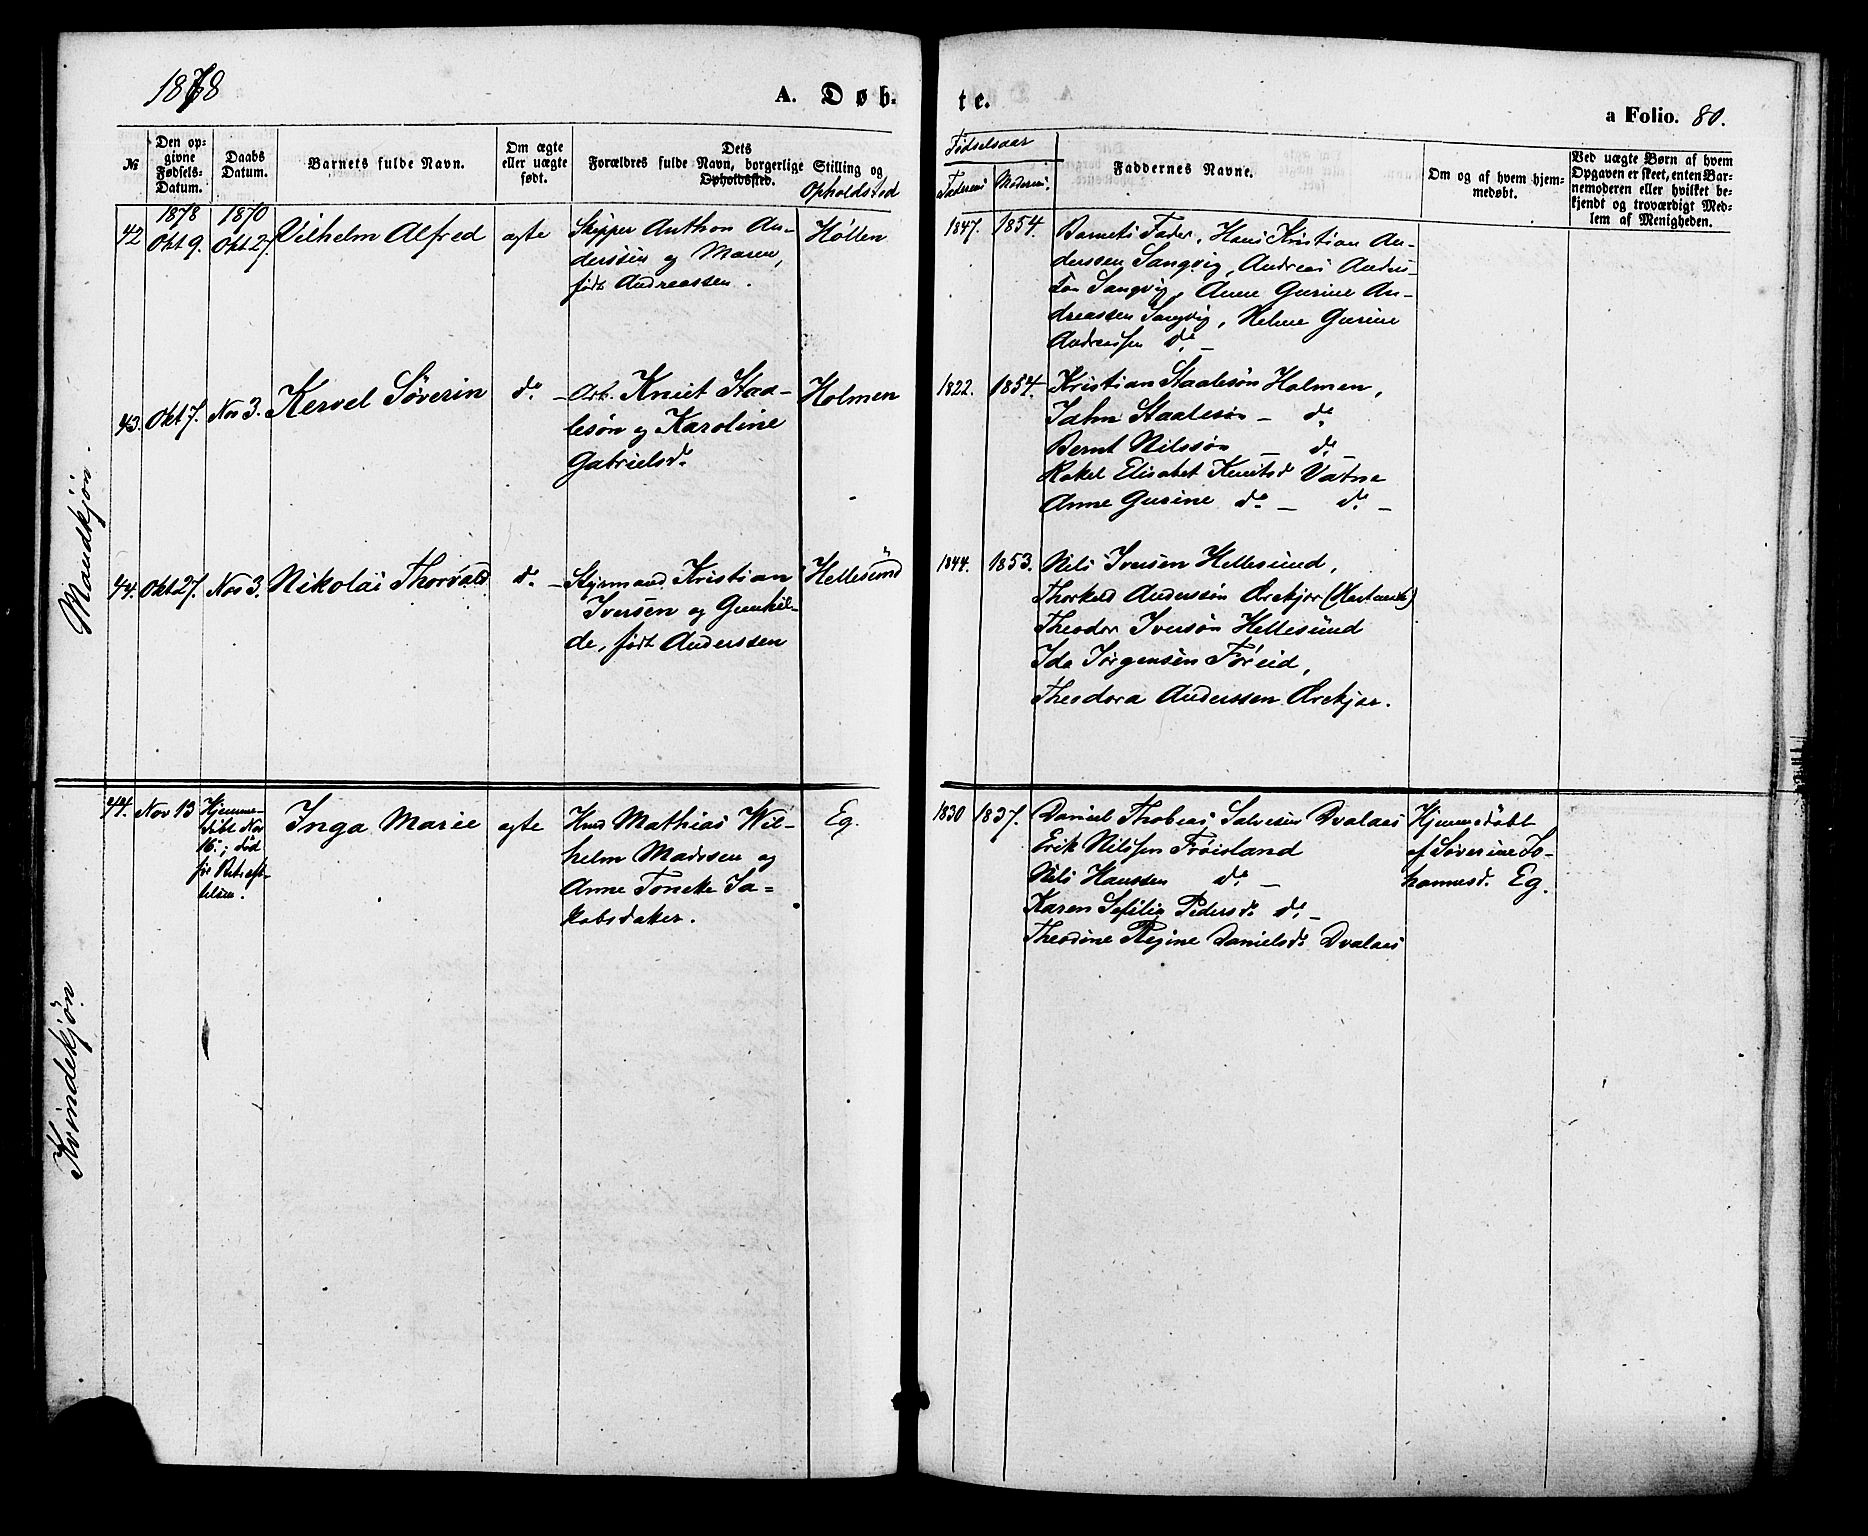 1878
A. Døb-
te.
a Folio. 80.
№
Den op-
givne
Fødsels-
Datum.
Daabs
Datum.
Barnets fulde Navn.
Om ægte
eller uægte
født.
Dets
Forældres fulde Navn, borgerlige Stilling og
Opholdssted.
Opholdssted
Fødselsaar
Faderens
Moderens.
Faddernes Navne.
Om og af hvem hjem-
medøbt.
Ved uægte Børn af hvem
Opgaven er skeet, enten Bar-
nemoderen eller hvilket be-
kjendt og troværdigt Med-
lem af Menigheden.
Mandkjøn.
42
1878
Okt 9.
1870
Okt. 27.
Vilhelm Alfred
ægte
Skipper Anthon An-
derssen og Maren,
født Andreassen.
Høllen
1847.
1854.
Barnets Fader, Hans Kristian An-
derssen Sangvig, Andreas Anders-
søn Sangvig, Anne Gurine An-
dreassen Sangvig, Helene Gurine
Andreassen do. –
43.
Okt 7.
Nov 3.
Kervel Søverin
do. –
Arb. Knut Staa-
lesøn og Karoline
Gabrielsd.
Holmen
1822.
1854.
Kristian Staalesøn Holmen,
Jahn Staalesøn – do.
Bernt Nilssøn – do.
Rakel Elisabet Knutsd. Vatne
Anne Gurine do. – do. –
44.
Okt 27.
Nov 3.
Nikolai Thorvald
do. –
Styrmand Kristian
Iversen og Gunhil-
de, født Anderssen
Hellesund
1844.
1853.
Nils Iversen Hellesund,
Thorkeld Anderssøn Ørekjær
Theodor Iversøn Hellesund
Ida Jørgensen
Theodora Anderssen Ørekjær.
Kvindekjøn.
44.
Nov 13
Hjemme-
døbt Nov
16.; død
før
Inga Marie
ægte
Hmd Mathias Wil-
helm Madssen og
Anne Toneke Ja-
kobsdatter.
Eg.
1830
1837.
Daniel Thobias Salvesen Dvalaas
Erik Nilssen Frøisland
Nils Hanssen do. –
Karen Sefilie Pedersd. do. –
Theodine Regine Danielsd. Dvalaas
Hjemmedøbt
af Søverine Jo-
hannesd. Eg.